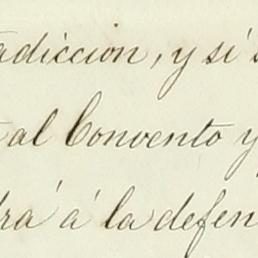 adiccion, y si s
al Convento y
drá á la defen